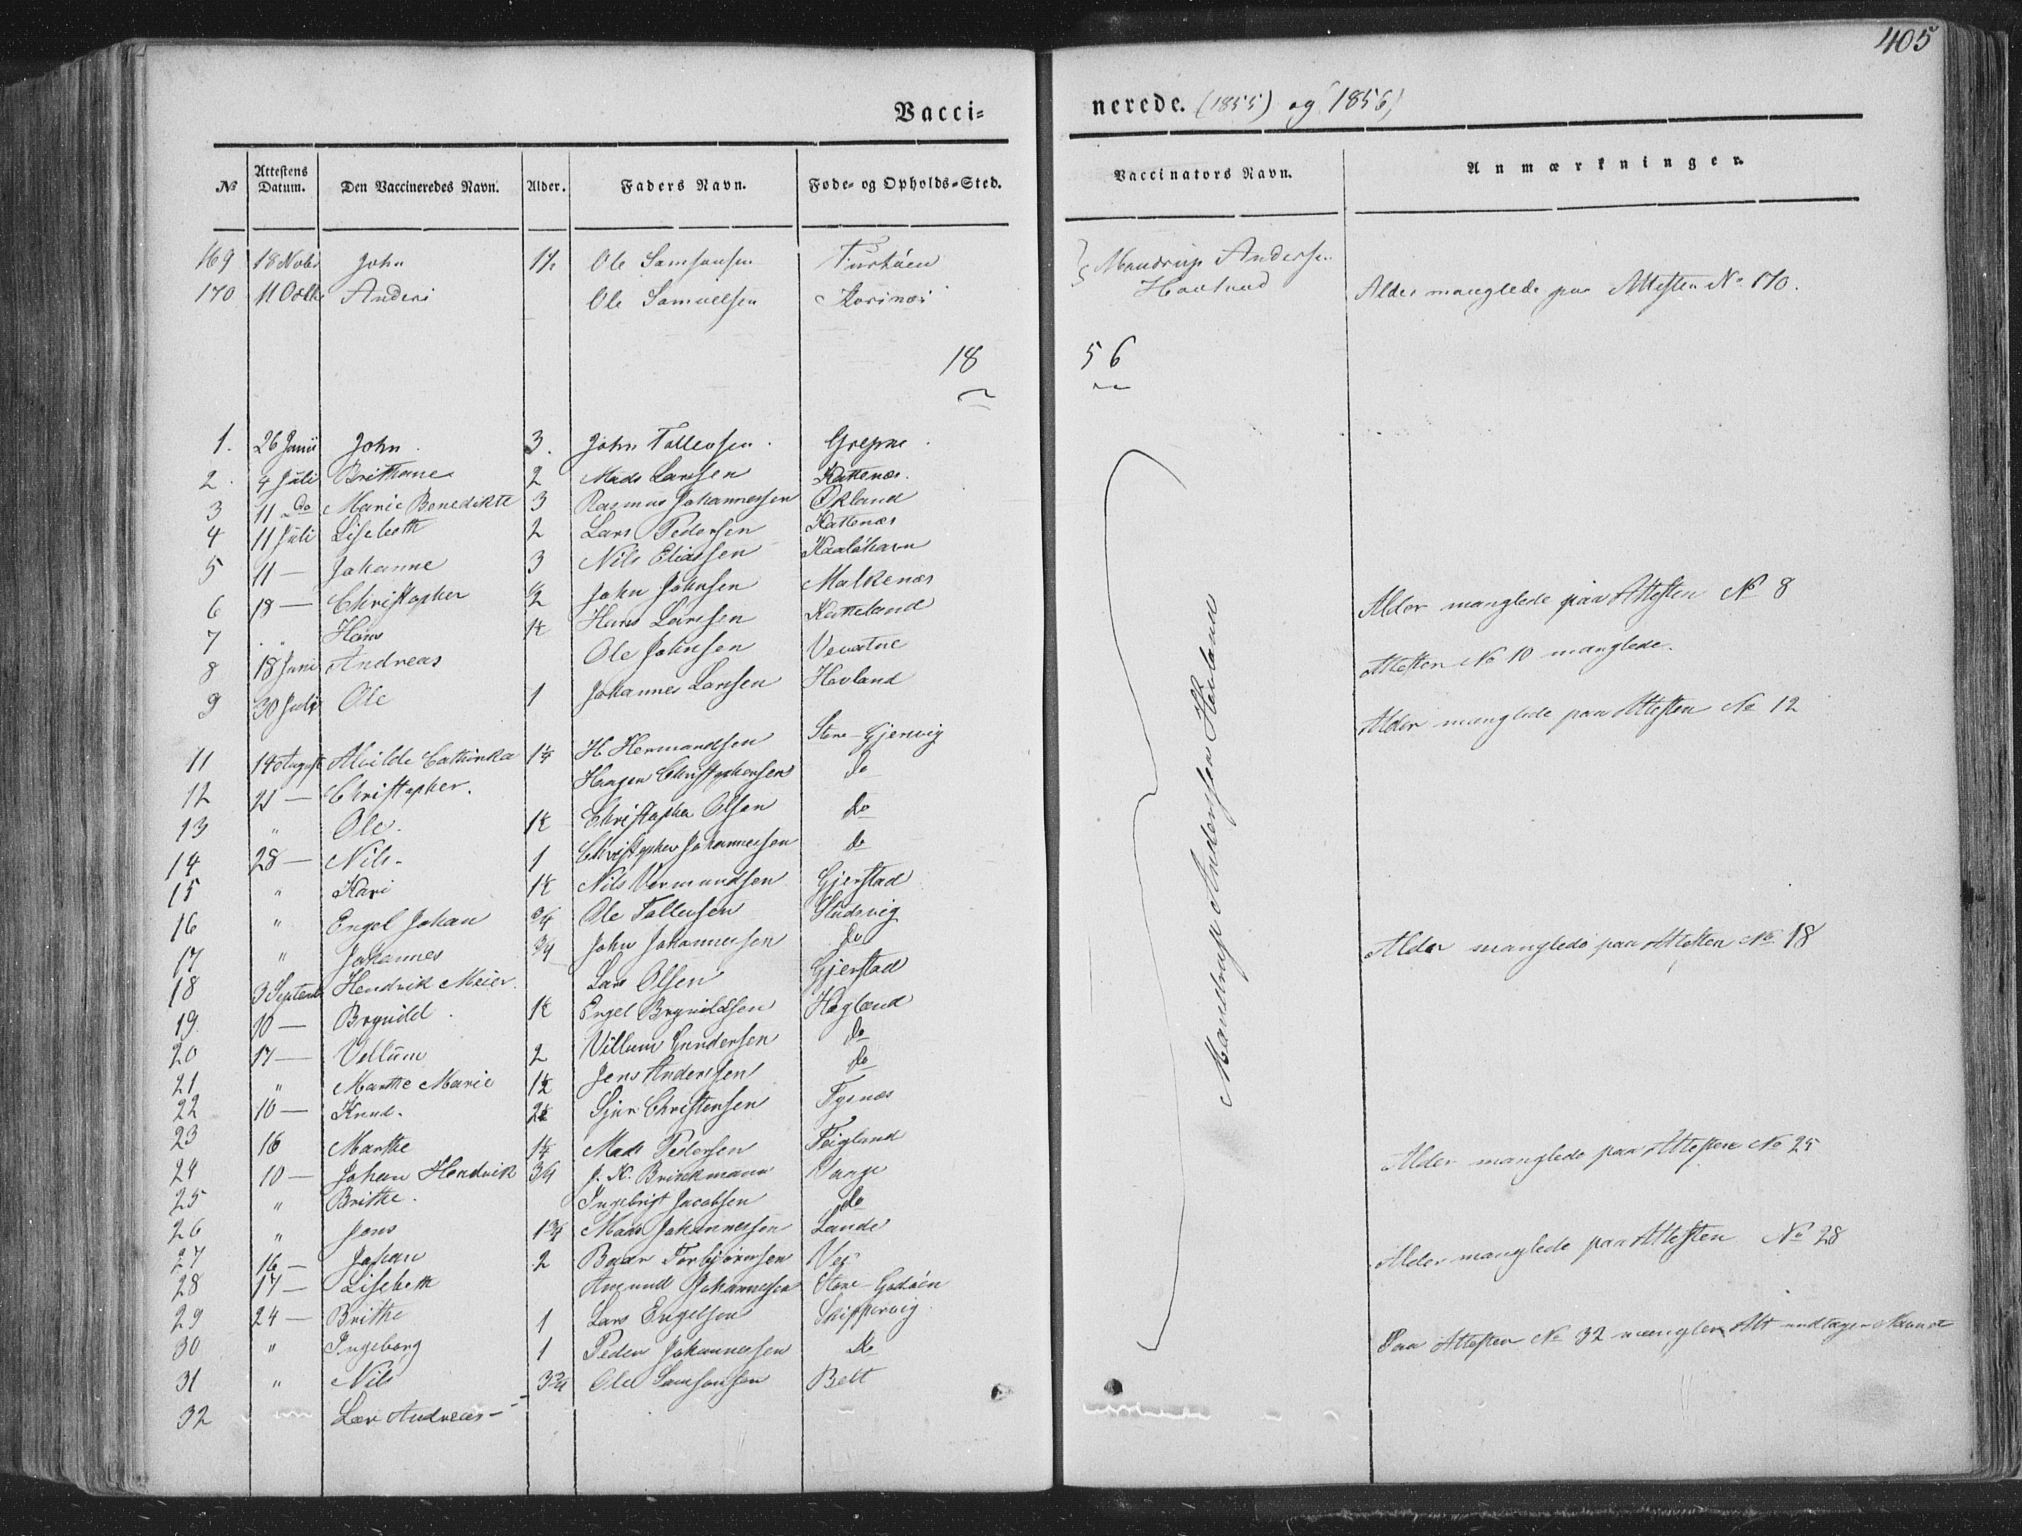 405
Vaccinerede. (1855) og 1856)
№ Attestens Datum. Den Vaccineredes Navn. Alder. Faders Navn. Føde- og Opholds-Sted. Vaccinators Navn. Anmærkninger.
169 18 Novbr John 1½ Ole Samsonsen Mandrup Andersen
170 11 Octb Anders Ole Samuelsen Hovland Alder manglede paa Attesten No 170.
18 56
1. 26 Junii John. 3. John Tollevsen. Grepne.
2. 4 Juli Brithane 2 Mads Larsen Kattenæs.
3 11 do Marie Benedikte 3 Rasmus Johannessen Økland
4 11 Juli Lisebeth 2 Lars Pedersen Kattenæs
5 11 — Johanne 3 Nils Eliassen
6 18 — Christopher ½ John Johnsen Malkenæs
7 " Hans 1½ Hans Larssen Katteland
8 18 Juni Andreas Ole Johnsen
9 30 Juli Ole 1 Johannes Larssen Hovland
11 14 August Alvilde Cathinka 1¼ H. Hermandsen Store-Gjervig
12 21 — Christopher. Haagen Christophersen do
13 " Ole. 1½ Christopher Olsen do
14 28 — Nils. 1 Christopher Johannessen do
15 " Kari 1½ Nils Vermundsen Gjerstad
16 " Engel Johan ¾ Ole Tollevsen Studsvig
17 " Johannes ¾ John Johannessen do
18 3 Septemb Hendrik Meier. Lars Olsen Gjerstad
19. 10 — Brynild. 1½ Engel Brynildsen Hogland
20 17 — Vellum 2 Villum Gundersen do
21 " Marthe Marie 1½ Jens Anderssen do
22 10 — Knud. 2½ Sjur Christensen Tysnæs
23 16 Marthe 1¼ Mads Pedersen Teigland
24 10 — Johan Hendrik ¾ J. H. Brinkmann Vaage
25 " Brithe. Ingebrigt Jacobsen do
26 " Jens 1¾ Mads Johannessen Lande
27 16 — Johan 2 Baar Torbjørnsen Vee
28 17 — Lisebeth Amund Johannessen Store-Godøen
29 24 — Brithe 1 Lars Engelsen Skippervig
30 " Ingeborg 1 Peder Johannessen do
31 " Nils 3¾ Ole Samsonsen Belt
32 Lars Andreas —
Mandrup Anderssen Hovland
Alder manglede paa Attesten No 8
Attesten No 10 manglede.
Alder manglede paa Attesten No 12
Alder manglede paa Attesten No 18
Alder manglede paa Attesten No 25
Alder manglede paa Attesten No 28
Paa Attesten No 32 mangler Alt undtagen Navnet